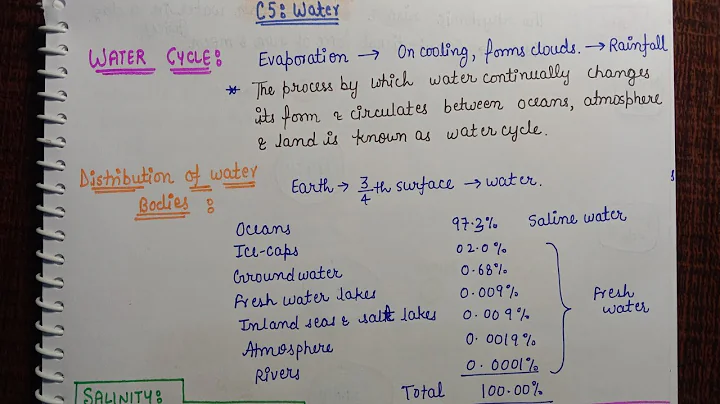 C5: Water
WATER CYCLE: Evaporation → On cooling, forms clouds. → Rainfall
* The process by which water continually changes
its form & circulates between oceans, atmosphere
& land is known as water cycle.
Distribution of water
Bodies :
Earth → 3/4 th surface → water.
Oceans 97.3% Saline water
Ice-caps 02.0%
Ground water 0.68%
Fresh water lakes 0.009%
Inland seas & salt lakes 0.009%
Atmosphere 0.0019%
Rivers 0.0001%
Fresh
water
Total 100.00%
SALINITY: